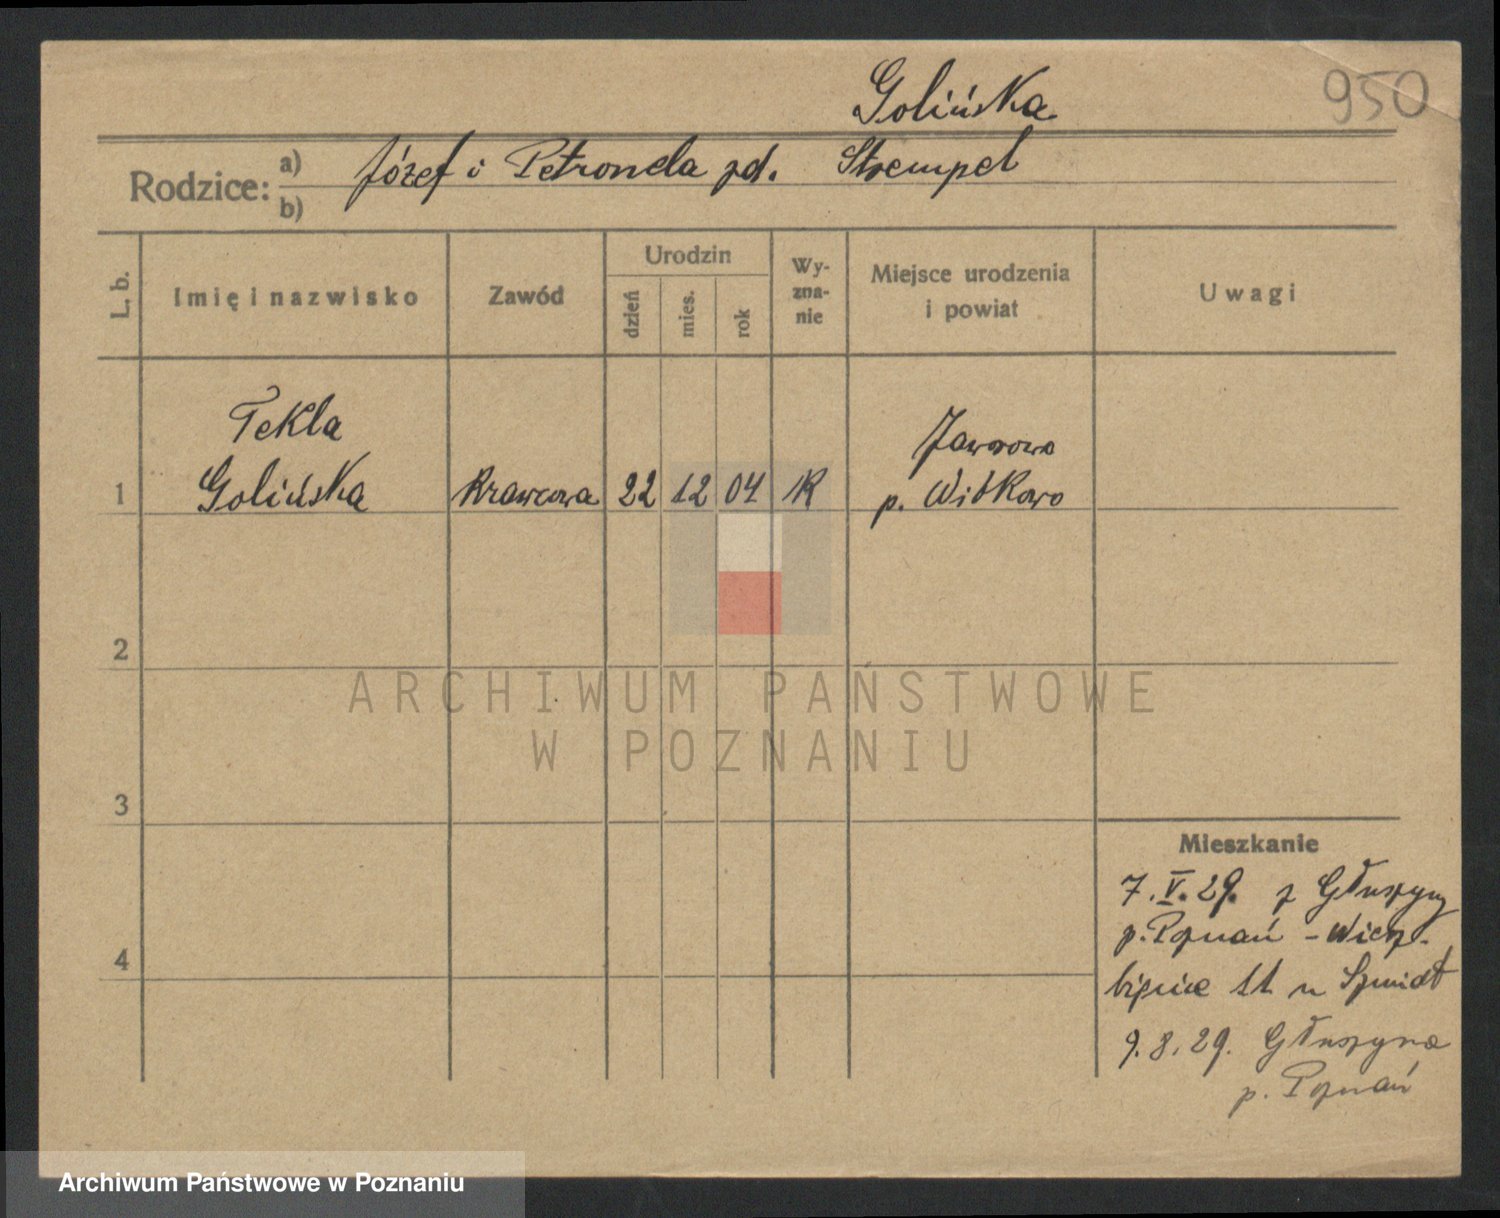 Golińska
950
Rodzice: a) Józef i Petronela zd. Strempel
b)
L. b.
Imię i nazwisko
Zawód
Urodzin
dzień
mies.
rok
Wy-
zna-
nie
Miejsce urodzenia
i powiat
Uwagi
Tekla Jaworowo
1 Golińska Krawcowa 22 12 04 RK p. Witkowo
2
ARCHIWUM PAŃSTWOWE
W POZNANIU
3
Mieszkanie
7.V.29. z Głuszyny
p. Poznań - Wierz-
bięcice 11 u Szmidt
4
9.8.29. Głuszyna
p. Poznań
Archiwum Państwowe w Poznaniu